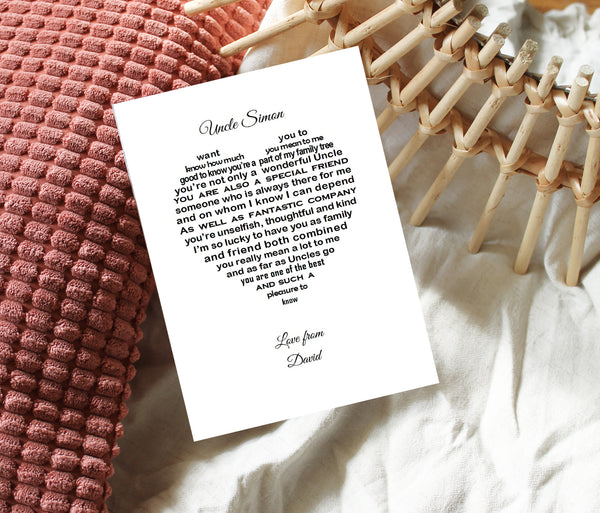 Uncle Simon
want you to
know how much you mean to me
good to know you're a part of my family tree
you're not only a wonderful Uncle
YOU ARE ALSO A SPECIAL FRIEND
someone who is always there for me
and on whom I know I can depend
AS WELL AS FANTASTIC COMPANY
you're unselfish, thoughtful and kind
I'm so lucky to have you as family
and friend both combined
you really mean a lot to me
and as far as Uncles go
you are one of the best
AND SUCH A
pleasure to
know
Love from
David